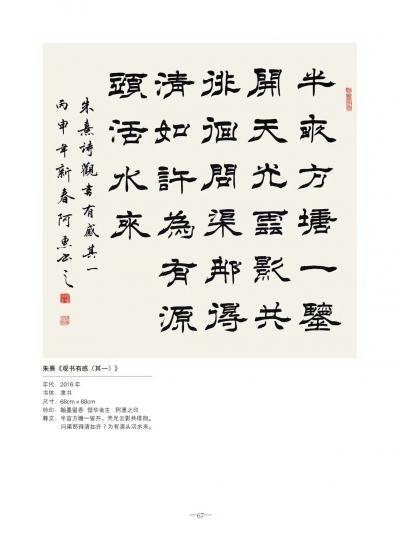 半畝方塘一鑒
開天光雲影共
徘徊問渠那得
清如許為有源
頭活水來
朱熹詩觀書有感其一
丙申年新春阿惠书之
朱熹《观书有感（其一）》
年代：2016年
书体：隶书
尺寸：68cm×68cm
钤印：翰墨留香 阿惠之印
释文：半亩方塘一鉴开，天光云影共徘徊。
问渠那得清如许？为有源头活水来。
—67—